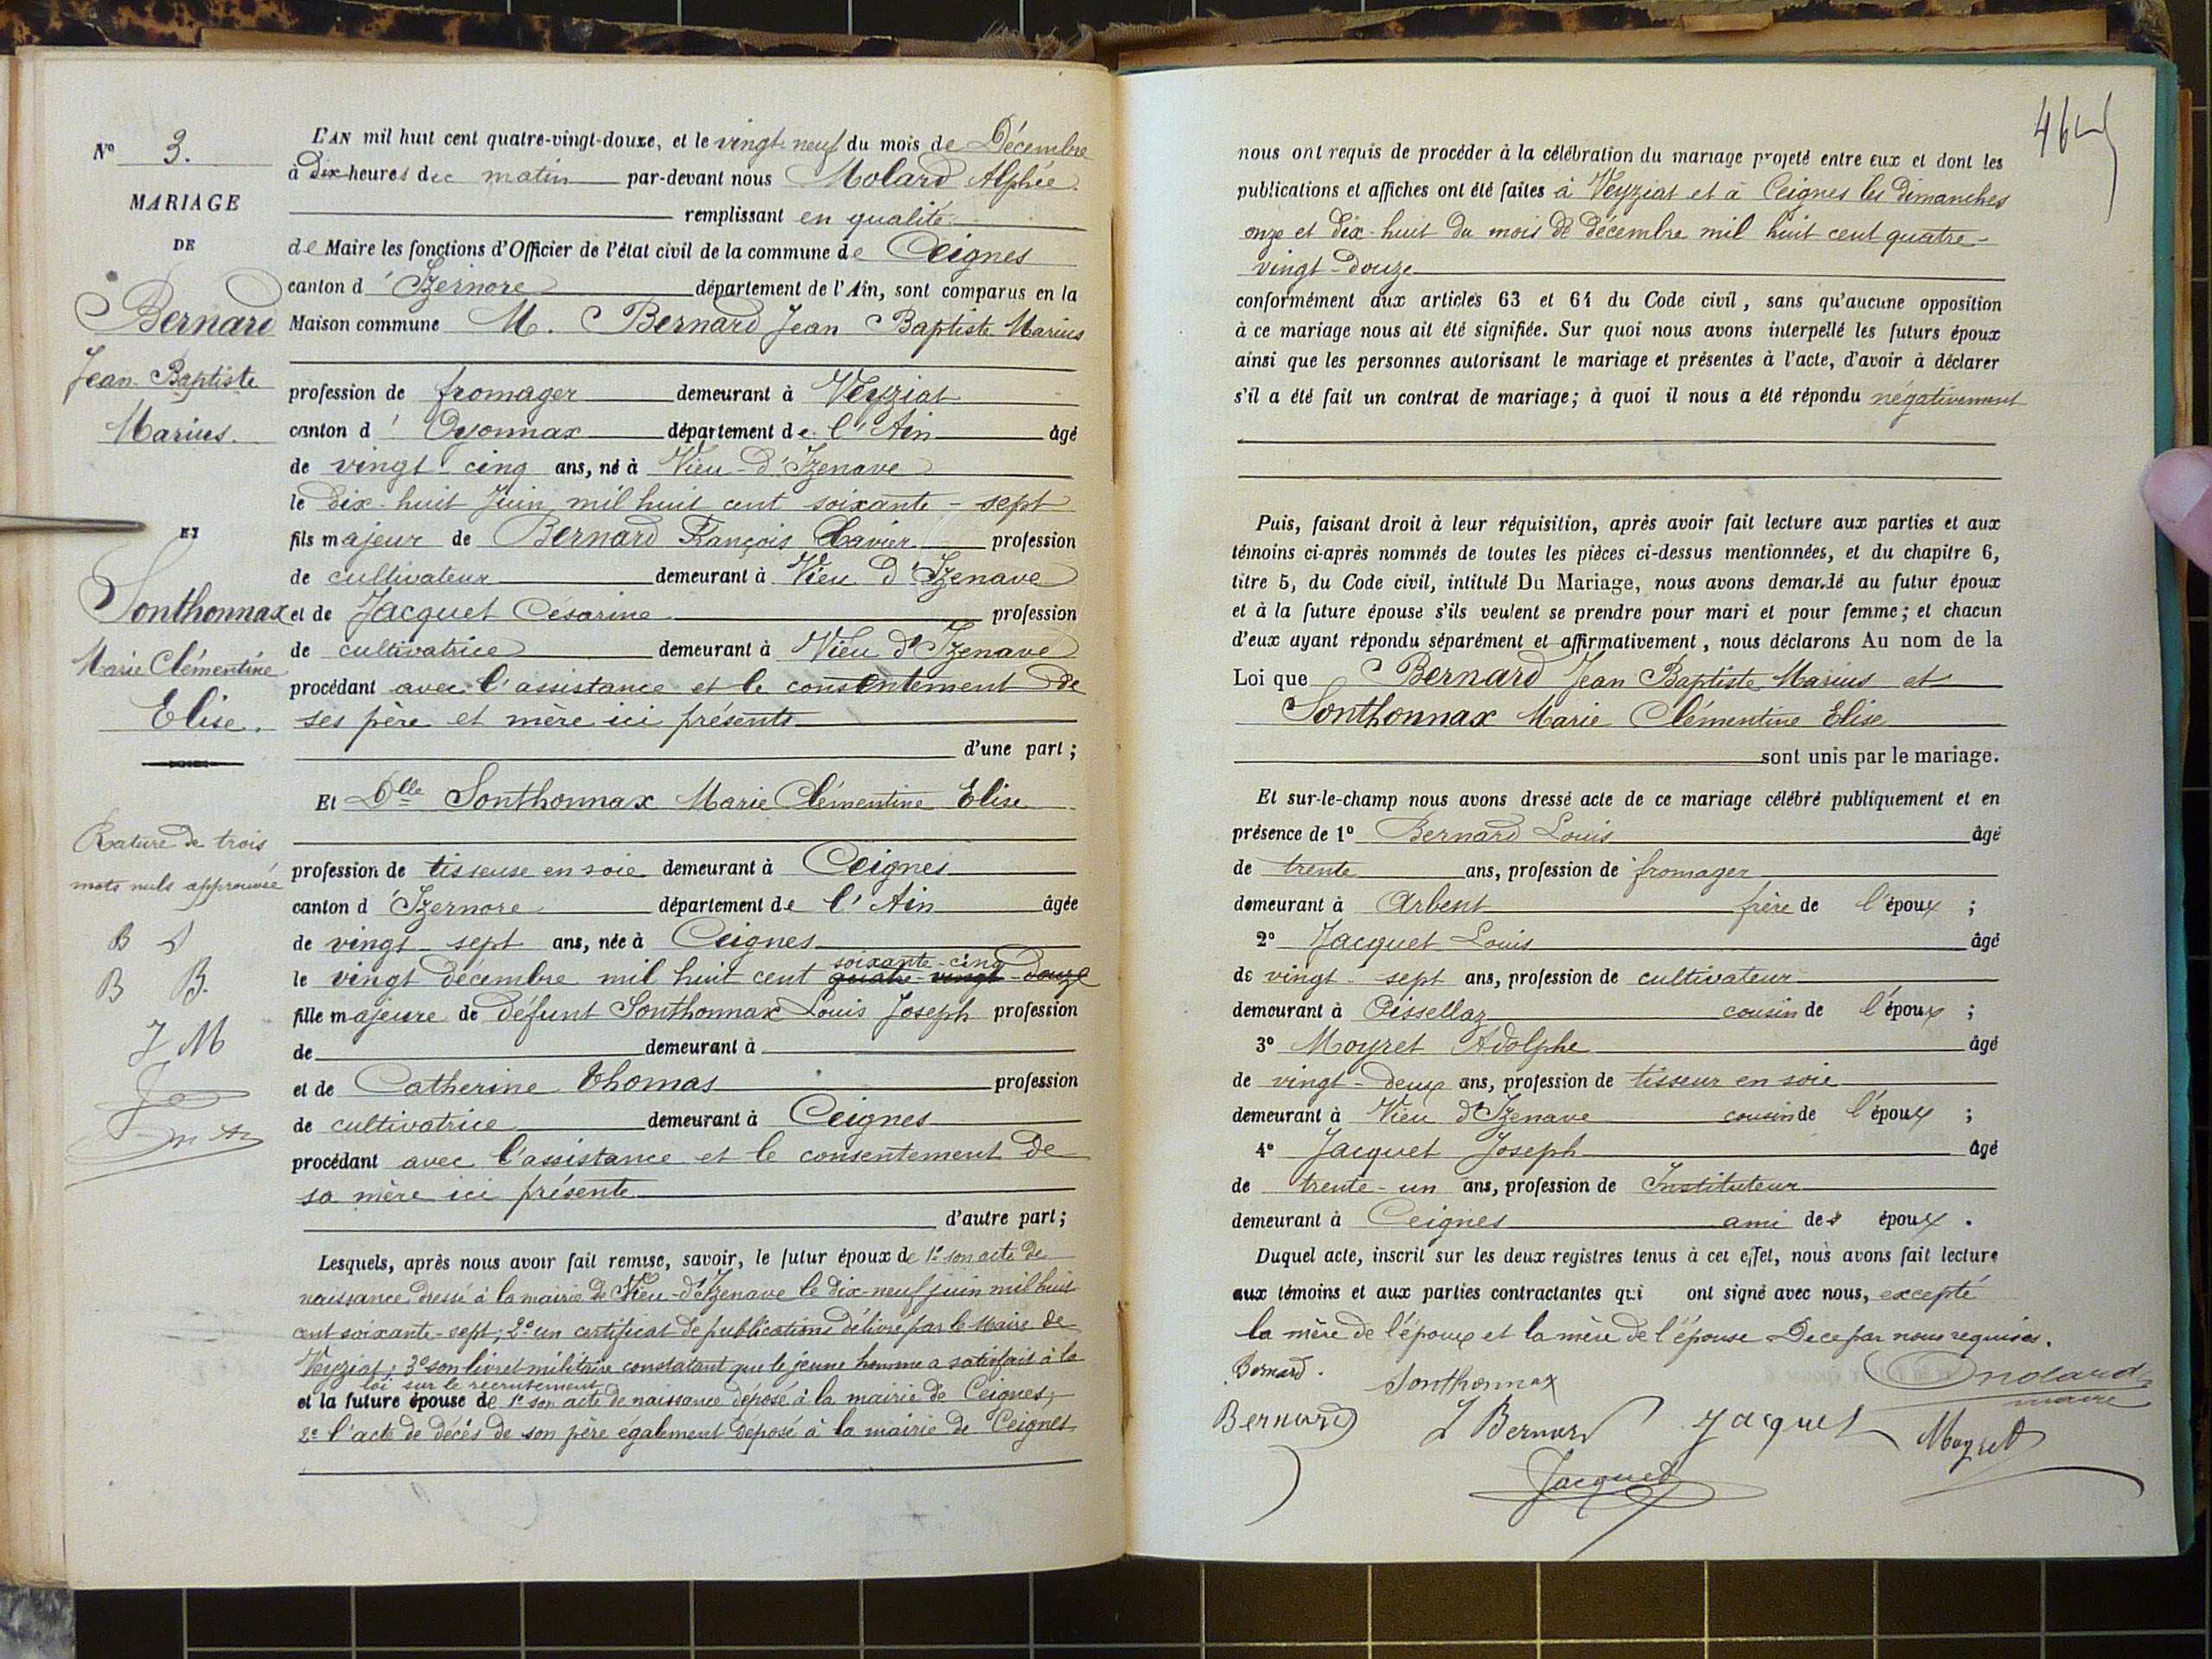 N° 3.
MARIAGE
DE
Bernard
Jean Baptiste
Marius.
ET
Sonthonnax
Marie Clémentine
Elise.
Rature de trois
mots nuls approuvée
B S
B B.
J M
L'AN mil huit cent quatre-vingt-douze, et le vingt-neuf du mois de Décembre
à Dix heures du matin par-devant nous Molard Alphée
remplissant en qualité
de Maire les fonctions d'Officier de l'état civil de la commune de Ceignes
canton d'Izernore département de l'Ain, sont comparus en la
Maison commune M. Bernard Jean Baptiste Marius
profession de fromager demeurant à Veyziat
canton d'Oyonnax département de l'Ain âgé
de vingt-cinq ans, né à Vieu-d'Izenave
le dix-huit Juin mil huit cent soixante-sept
fils majeur de Bernard François Xavier profession
de cultivateur demeurant à Vieu d'Izenave
et de Jacquet Césarine profession
de cultivatrice demeurant à Vieu d'Izenave
procédant avec l'assistance et le consentement de
ses père et mère ici présents
d'une part;
Et Dlle Sonthonnax Marie Clémentine Elise
profession de tisseuse en soie demeurant à Ceignes
canton d'Izernore département de l'Ain âgée
de vingt-sept ans, née à Ceignes
soixante-cinq
le vingt décembre mil huit cent quatre-vingt-douze
fille majeure de défunt Sonthonnax Louis Joseph profession
de demeurant à
et de Catherine Thomas profession
de cultivatrice demeurant à Ceignes
procédant avec l'assistance et le consentement de
sa mère ici présente
d'autre part;
Lesquels, après nous avoir fait remise, savoir, le futur époux de 1° son acte de
naissance dressé à la mairie de Vieu-d'Izenave le dix-neuf juin mil huit
cent soixante-sept; 2° un certificat de publications délivré par le Maire de
Veyziat; 3° son livret militaire constatant que le jeune homme a satisfait à la
loi sur le recrutement
et la future épouse de 1° son acte de naissance déposé à la mairie de Ceignes;
2° l'acte de décès de son père également déposé à la mairie de Ceignes
46
nous ont requis de procéder à la célébration du mariage projeté entre eux et dont les
publications et affiches ont été faites à Veyziat et à Ceignes les dimanches
onze et dix-huit du mois de décembre mil huit cent quatre-
vingt-douze
conformément aux articles 63 et 64 du Code civil, sans qu'aucune opposition
à ce mariage nous ait été signifiée. Sur quoi nous avons interpellé les futurs époux
ainsi que les personnes autorisant le mariage et présentes à l'acte, d'avoir à déclarer
s'il a été fait un contrat de mariage; à quoi il nous a été répondu négativement
Puis, faisant droit à leur réquisition, après avoir fait lecture aux parties et aux
témoins ci-après nommés de toutes les pièces ci-dessus mentionnées, et du chapitre 6,
titre 5, du Code civil, intitulé Du Mariage, nous avons demandé au futur époux
et à la future épouse s'ils veulent se prendre pour mari et pour femme; et chacun
d'eux ayant répondu séparément et affirmativement, nous déclarons Au nom de la
Loi que Bernard Jean Baptiste Marius et
Sonthonnax Marie Clémentine Elise
sont unis par le mariage.
Et sur-le-champ nous avons dressé acte de ce mariage célébré publiquement et en
présence de 1° Bernard Louis âgé
de trente ans, profession de fromager
demeurant à Arbent frère de l'époux ;
2° Jacquet Louis âgé
de vingt-sept ans, profession de cultivateur
demeurant à Cissellaz cousin de l'époux ;
3° Moyret Adolphe âgé
de vingt-deux ans, profession de tisseur en soie
demeurant à Vieu d'Izenave cousin de l'époux ;
4° Jacquet Joseph âgé
de trente-un ans, profession de Instituteur
demeurant à Ceignes ami des époux .
Duquel acte, inscrit sur les deux registres tenus à cet effet, nous avons fait lecture
aux témoins et aux parties contractantes qui ont signé avec nous, excepté
la mère de l'époux et la mère de l'épouse de ce par nous requises.
Bernard. Sonthonnax Molard
maire
Bernard L Bernard Jacquet Moyret
Jacquet